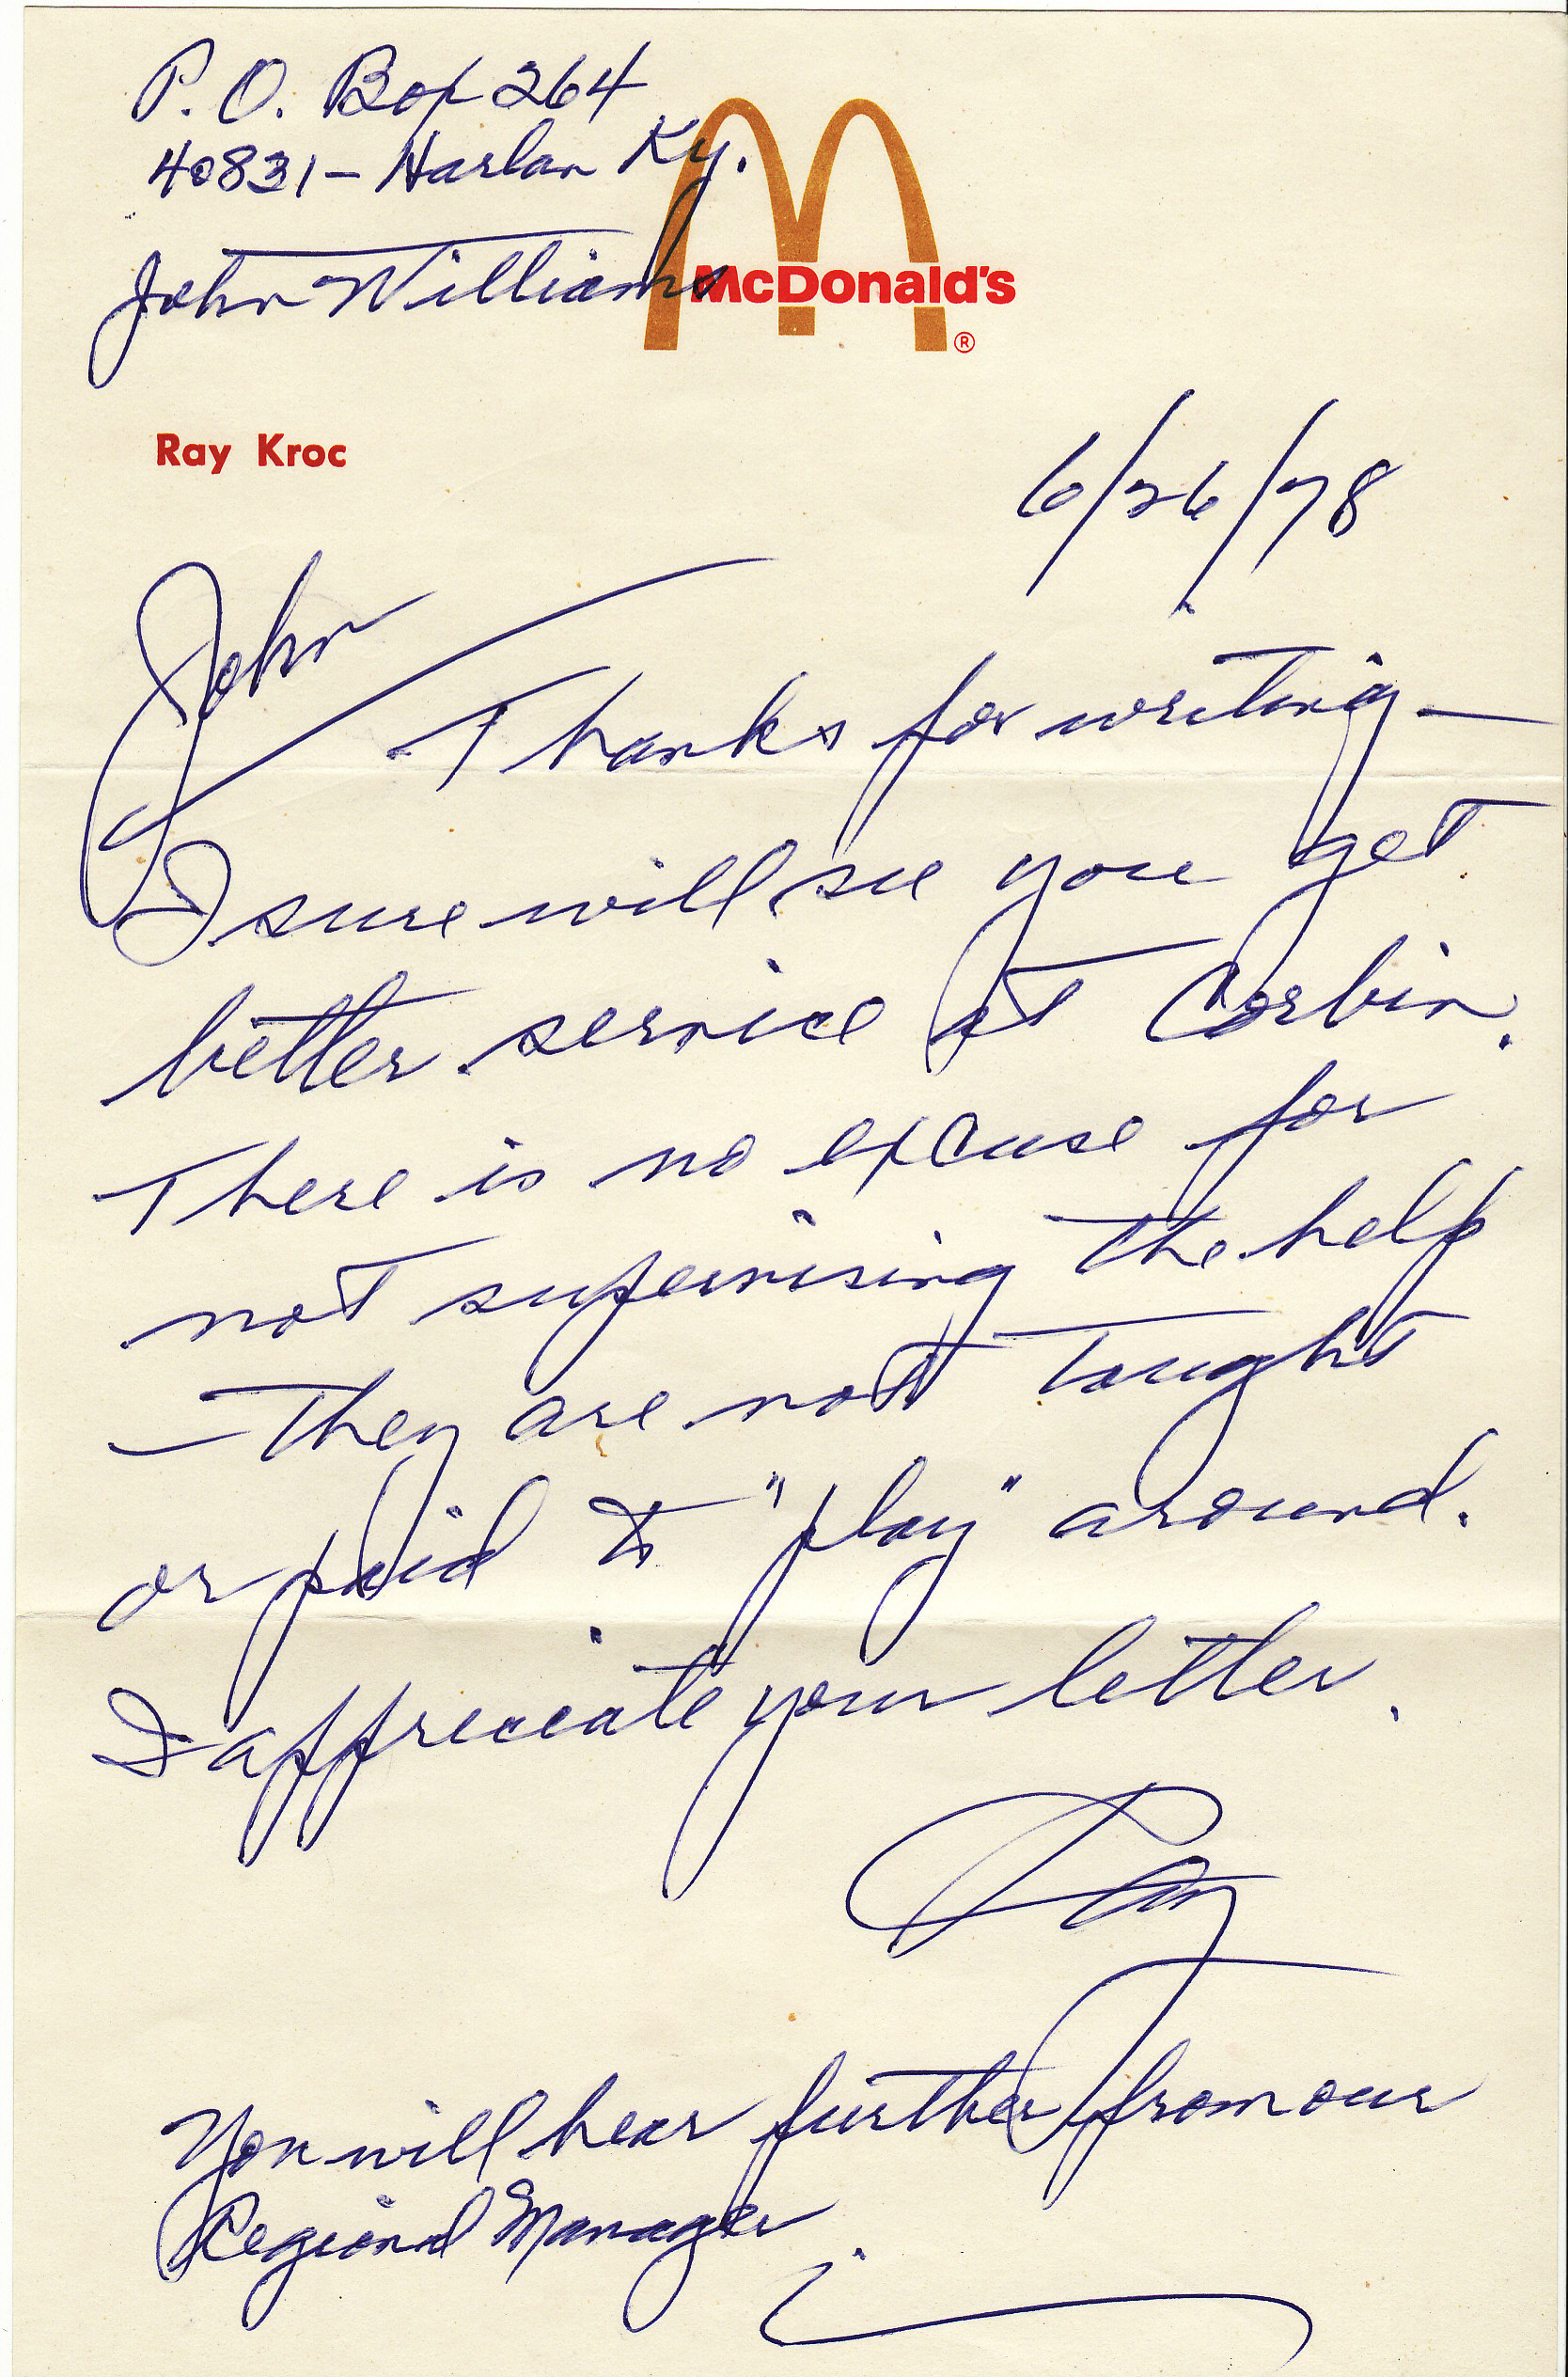 P. O. Box 264
40831 - Harlan Ky.
John Williams
McDonald's
®
Ray Kroc
6/26/78
John
Thanks for writing —
I sure will see you get
better service at Corbin.
There is no excuse for
not supervising the help
— they are not taught
or paid to "play" around.
I appreciate your letter.
Ray
You will hear further from our
Regional Manager